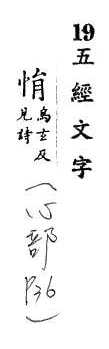 19 五經文字
悁 烏玄反
見詩
(心部 P36)